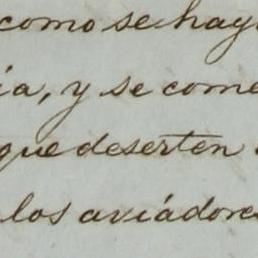 como se hay
ia, y se come
que deserten
los aviádores